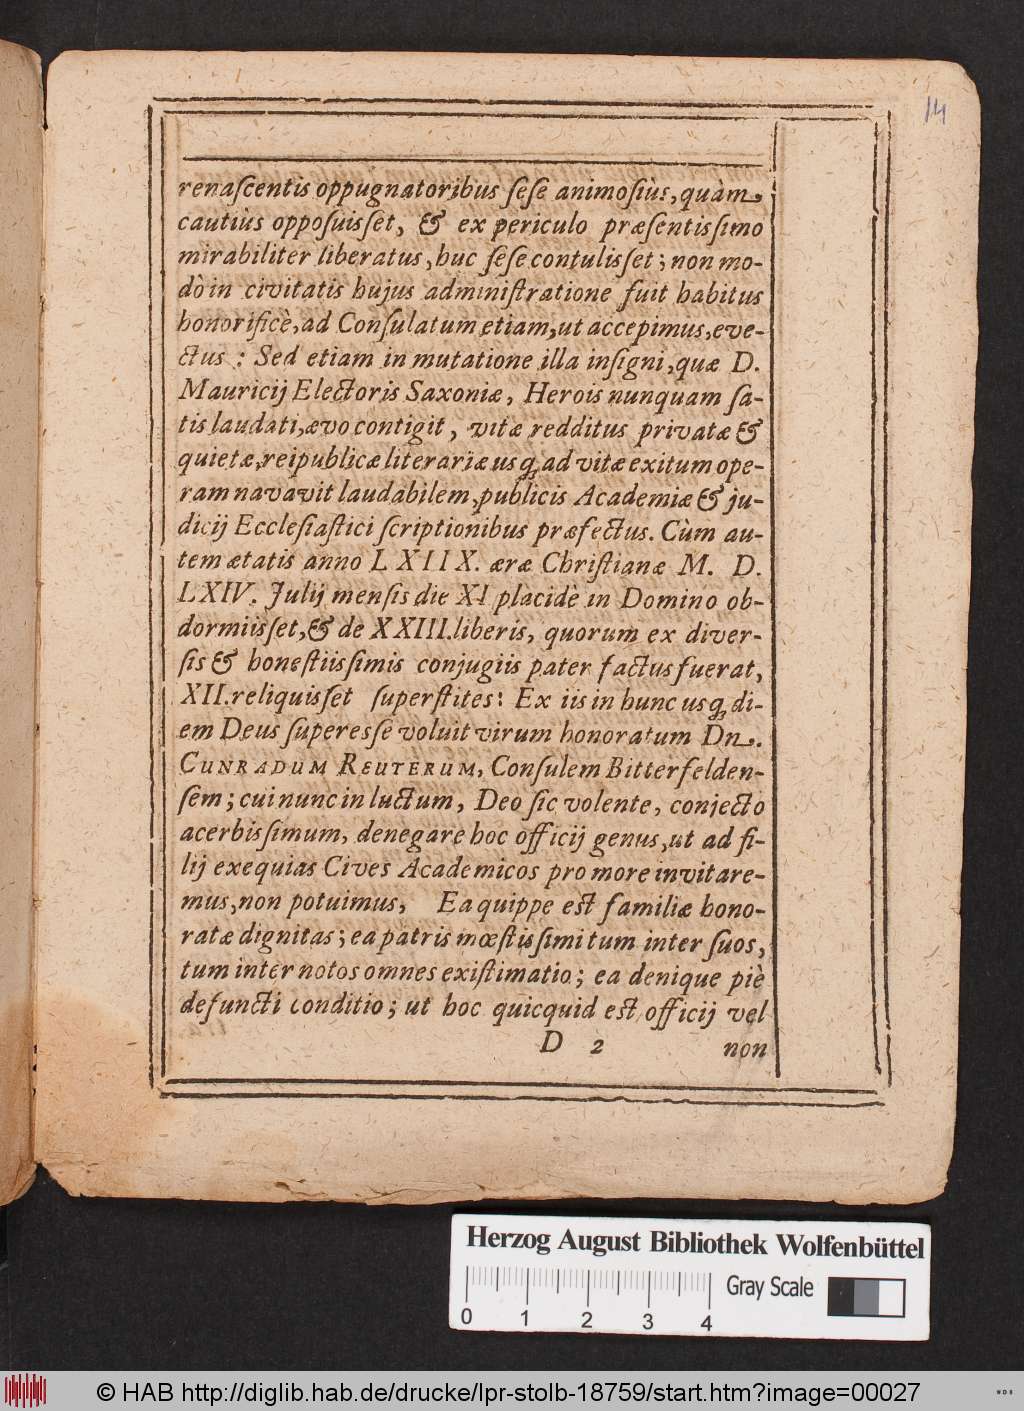 14
renaſcentis oppugnatoribus ſeſe animoſiùs, quàm
cautiùs oppoſuiſſet, & ex periculo præſentiſſimo
mirabiliter liberatus, huc ſeſe contuliſſet; non mo-
dò in civitatis hujus adminiſtratione fuit habitus
honorificè, ad Conſulatum etiam, ut accepimus, eve-
ctus : Sed etiam in mutatione illa inſigni, quæ D.
Mauricij Electoris Saxoniæ, Herois nunquam ſa-
tis laudati, ævo contigit, vitæ redditus privatæ &
quietæ, reipublicæ literariæ usq; ad vitæ exitum ope-
ram navavit laudabilem, publicis Academiæ & ju-
dicij Eccleſiaſtici ſcriptionibus præfectus. Cùm au-
tem ætatis anno LXIIX. æræ Chriſtianæ M. D.
LXIV. Julij menſis die XI placidè in Domino ob-
dormiiſſet, & de XXIII. liberis, quorum ex diver-
ſis & honeſtiiſſimis conjugiis pater factus fuerat,
XII. reliquiſſet ſuperſtites: Ex iis in hunc usq; di-
em Deus ſupereſſe voluit virum honoratum Dn.
CUNRADUM REUTERUM, Conſulem Bitterfelden-
ſem; cui nunc in luctum, Deo ſic volente, conjecto
acerbiſſimum, denegare hoc officij genus, ut ad fi-
lij exequias Cives Academicos pro more invitare-
mus, non potuimus, Ea quippe eſt familiæ hono-
ratæ dignitas; ea patris mœſtiſſimi tum inter ſuos,
tum inter notos omnes exiſtimatio; ea denique piè
defuncti conditio; ut hoc quicquid eſt officij vel
D 2 non
Herzog August Bibliothek Wolfenbüttel
Gray Scale
0 1 2 3 4
© HAB http://diglib.hab.de/drucke/lpr-stolb-18759/start.htm?image=00027